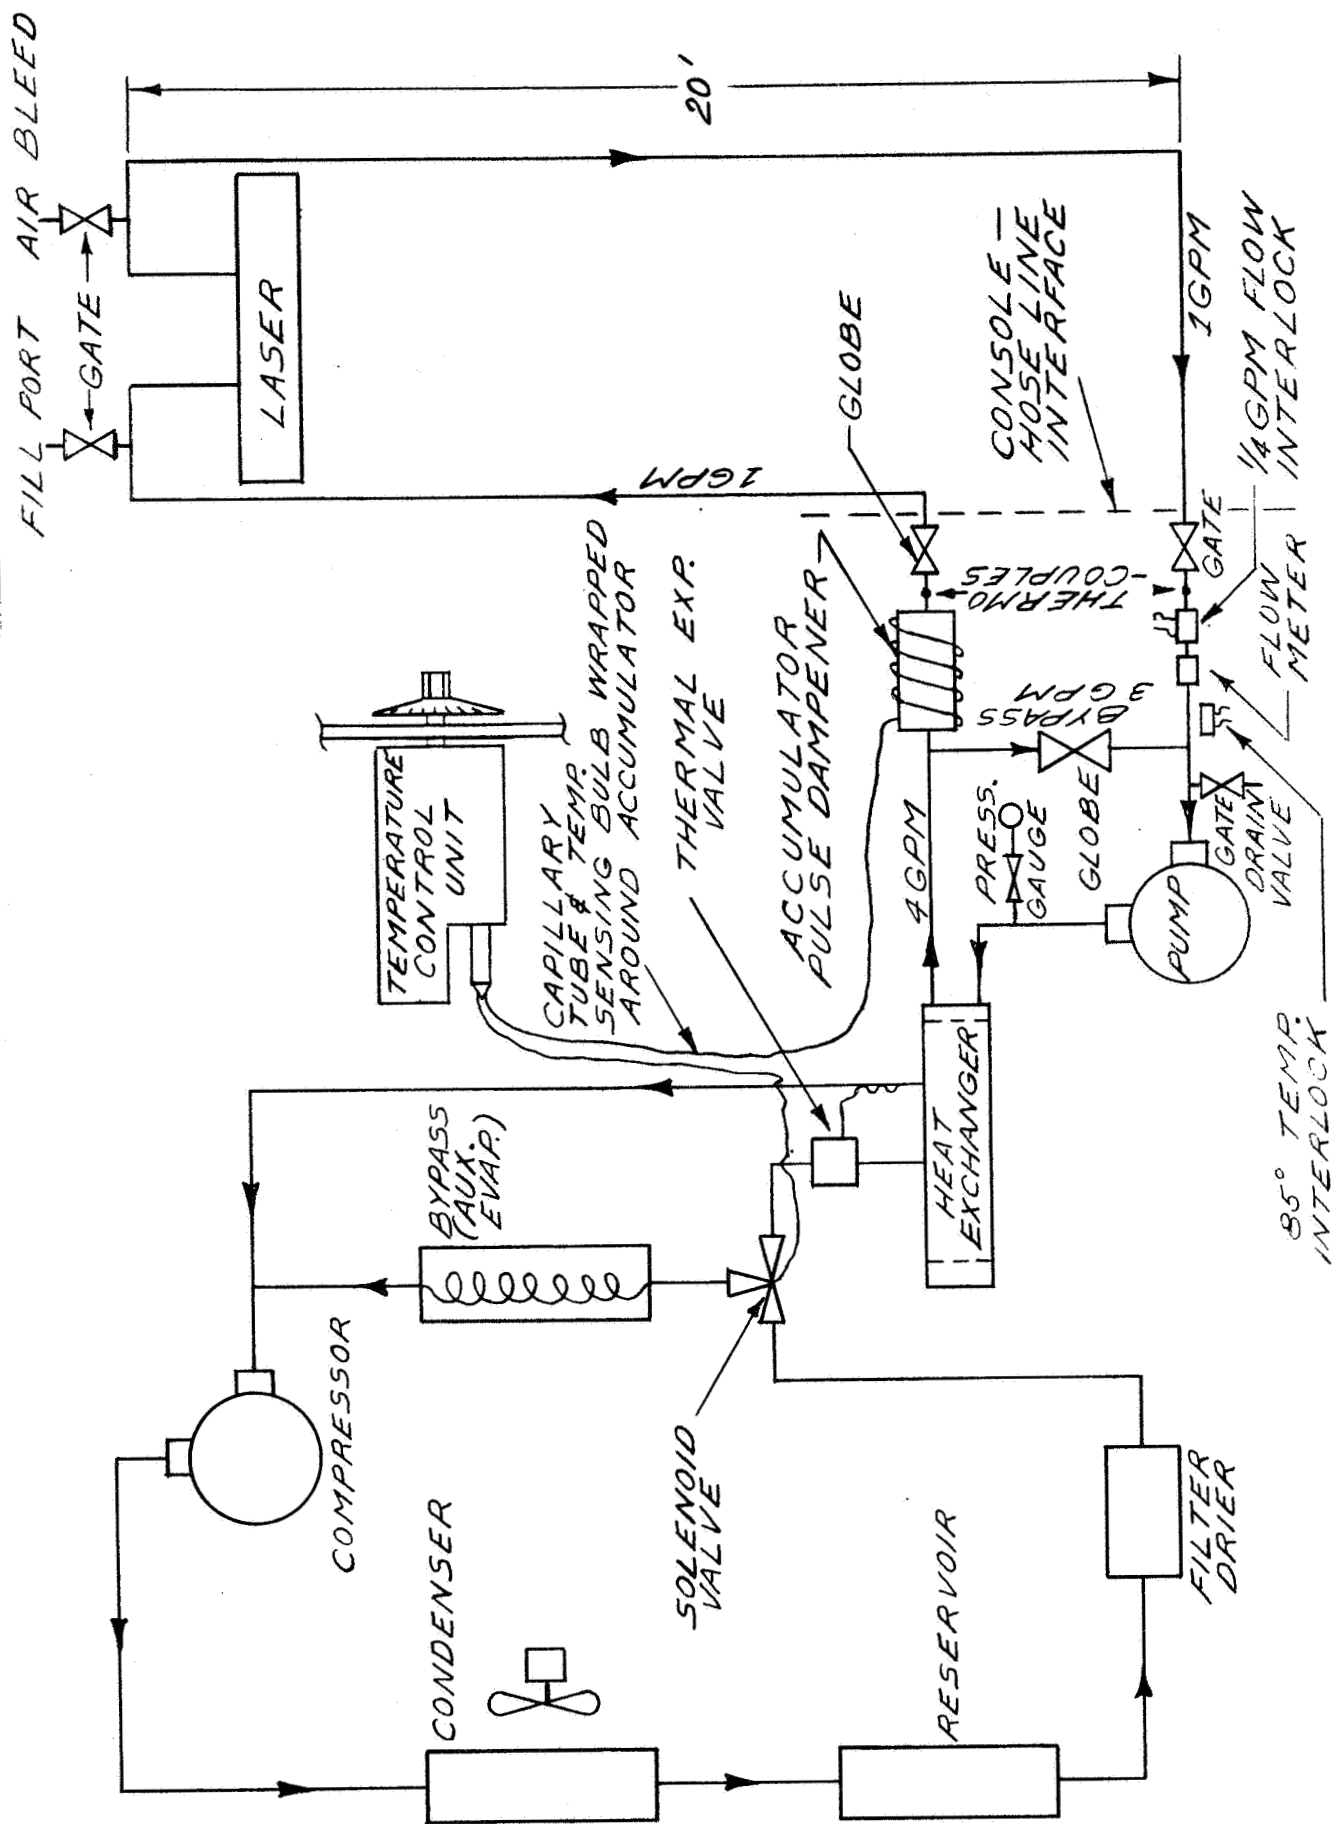 FILL PORT
AIR BLEED
GATE
LASER
20'
1 GPM
1 GPM
GLOBE
CONSOLE —
HOSE LINE
INTERFACE
1/4 GPM FLOW
INTERLOCK
GATE
FLOW
METER
THERMO
-COUPLES
TEMPERATURE
CONTROL
UNIT
CAPILLARY
TUBE & TEMP.
SENSING BULB WRAPPED
AROUND ACCUMULATOR
THERMAL EXP.
VALVE
ACCUMULATOR
PULSE DAMPENER
BYPASS
3 GPM
4 GPM
PRESS.
GAUGE
GLOBE
GATE
DRAIN
VALVE
PUMP
85° TEMP.
INTERLOCK
HEAT
EXCHANGER
BYPASS
(AUX.
EVAP.)
COMPRESSOR
SOLENOID
VALVE
CONDENSER
RESERVOIR
FILTER
DRIER